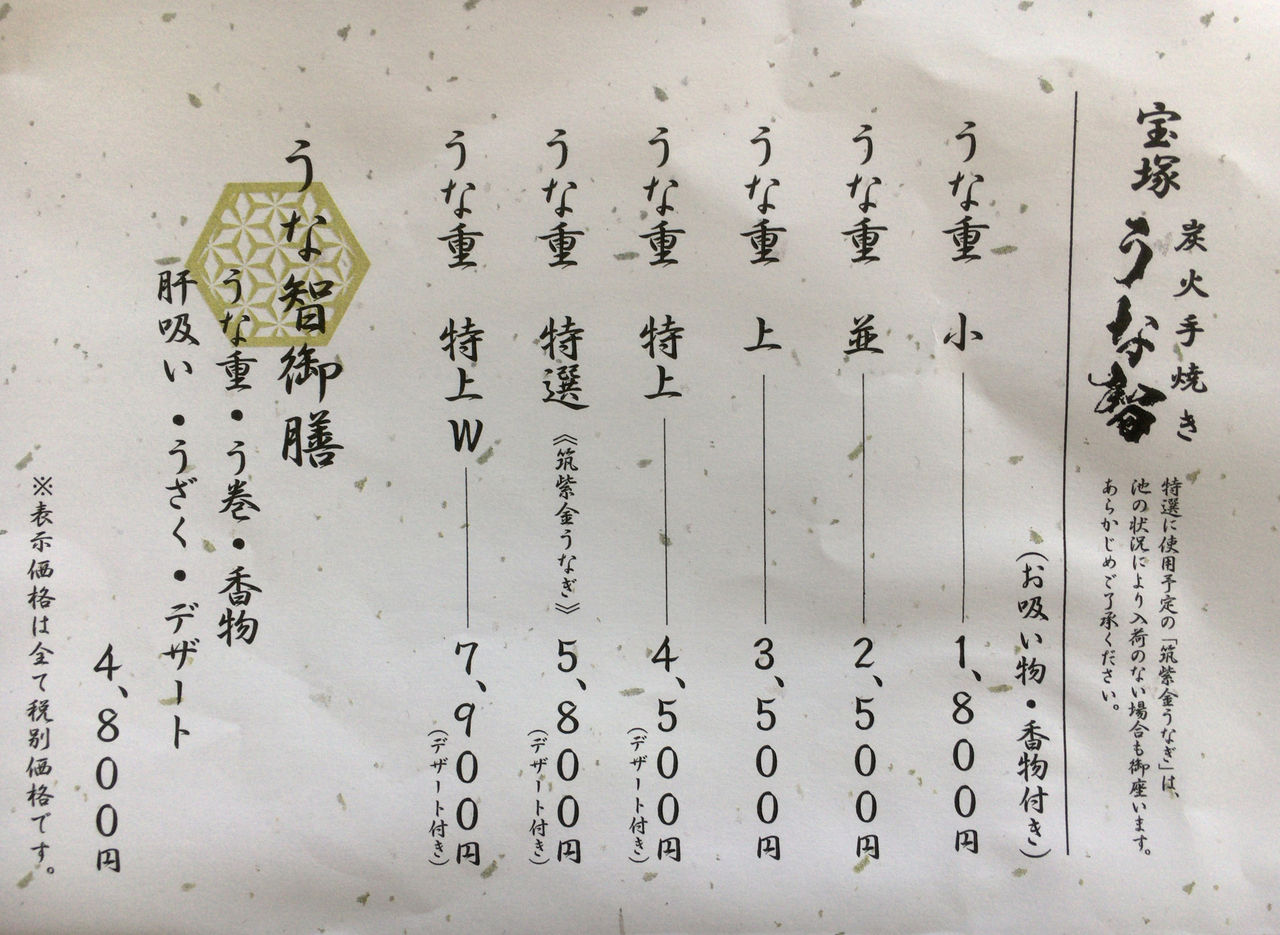 宝塚
炭火手焼き
うな智
特選に使用予定の「筑紫金うなぎ」は、
池の状況により入荷のない場合も御座います。
あらかじめご了承ください。
（お吸い物・香物付き）
うな重 小 1,800円
うな重 並 2,500円
うな重 上 3,500円
うな重 特上 4,500円
（デザート付き）
うな重 特選 《筑紫金うなぎ》 5,800円
（デザート付き）
うな重 特上W 7,900円
（デザート付き）
うな智御膳
うな重・う巻・香物
肝吸い・うざく・デザート
4,800円
※表示価格は全て税別価格です。